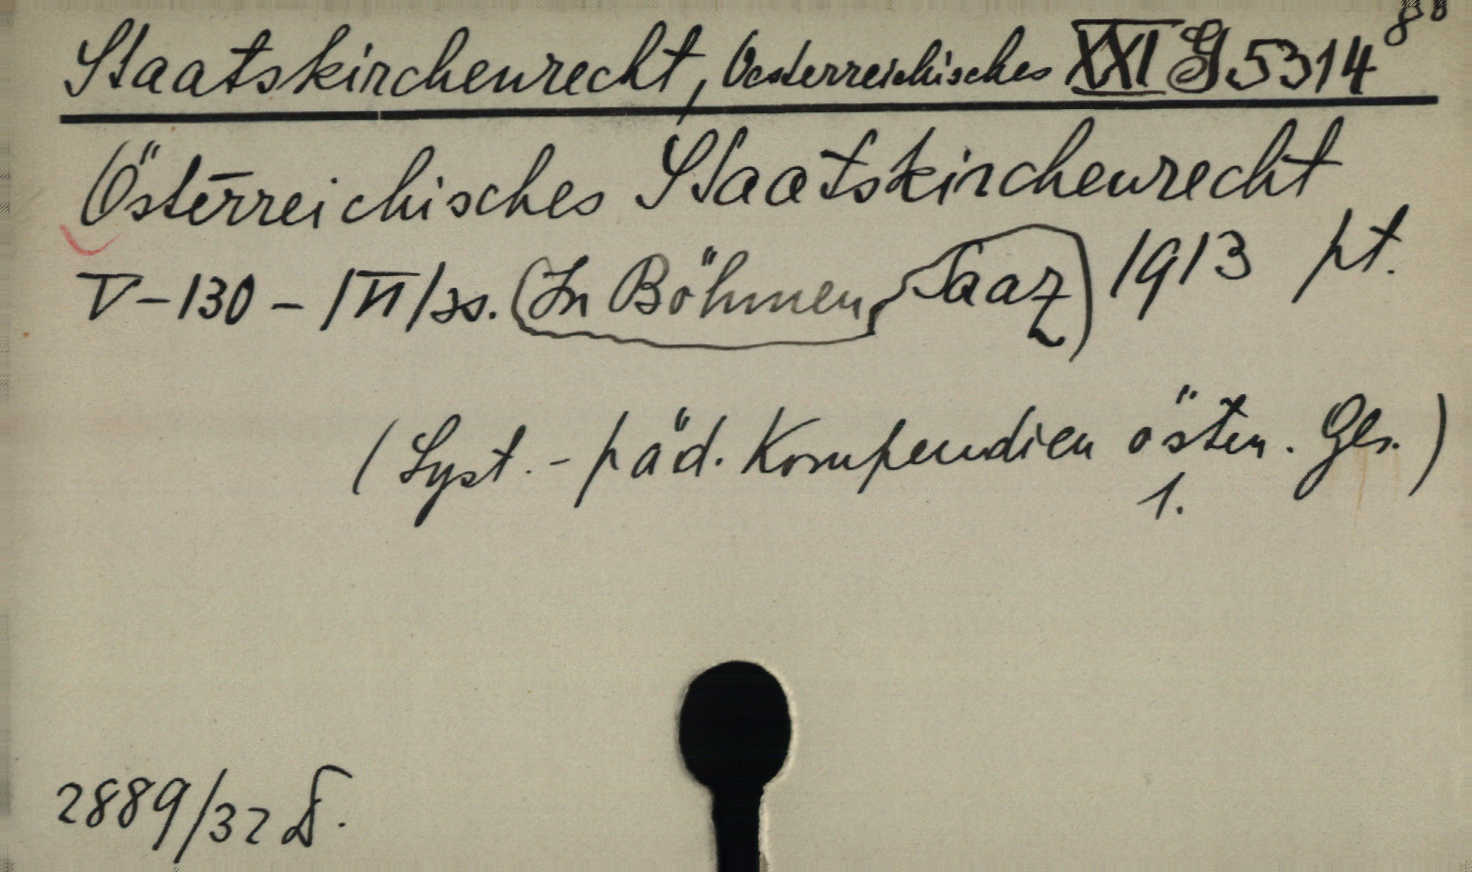 Staatskirchenrecht, Oesterreichisches XXI G 5314 8°
Österreichisches Staatskirchenrecht
V-130 - | VI | ss. (In Böhmen, Saaz) 1913 pt.
(Syst.-päd. Kompendien österr. Ges.)
1.
2889/32 D.